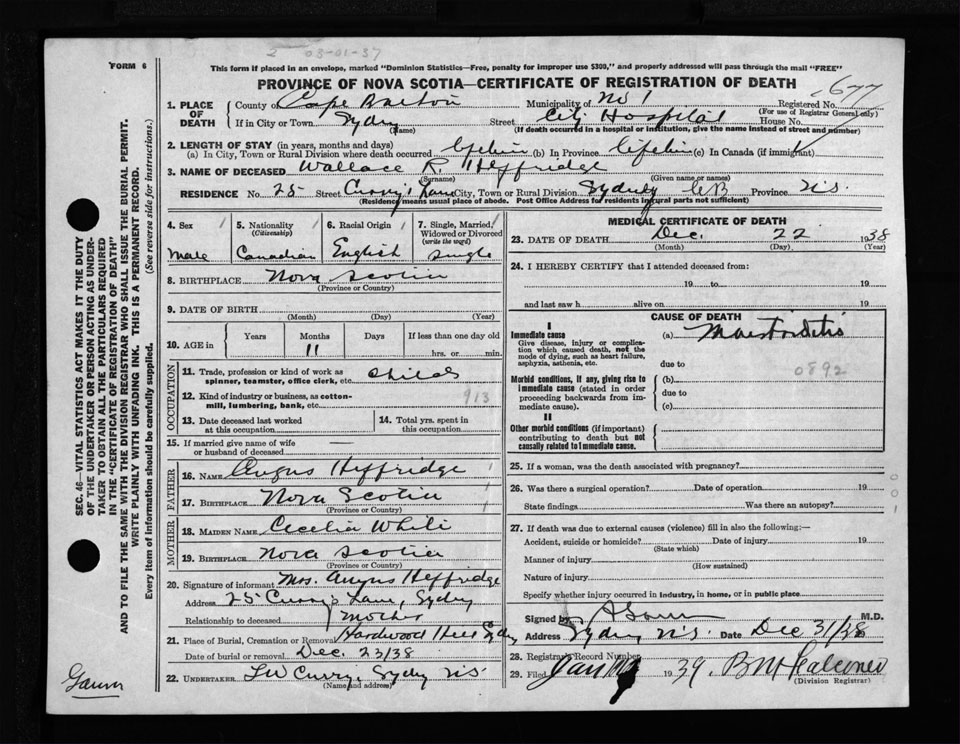 2 03-01-37
FORM 6
This form if placed in an envelope, marked "Dominion Statistics—Free, penalty for improper use $300," and properly addressed will pass through the mail "FREE"
PROVINCE OF NOVA SCOTIA—CERTIFICATE OF REGISTRATION OF DEATH
677
1. PLACE OF DEATH
County of Cape Breton Municipality of No 1 Registered No.
(For use of Registrar General only)
If in City or Town Sydney Street City Hospital House No.
(Name) (If death occurred in a hospital or institution, give the name instead of street and number)
2. LENGTH OF STAY (in years, months and days)
(a) In City, Town or Rural Division where death occurred Lifetime (b) In Province Lifetime (c) In Canada (if immigrant)
3. NAME OF DECEASED Wallace R. Heffridge
(Surname) (Given name or names)
RESIDENCE No. 25 Street Curry's Lane City, Town or Rural Division Sydney CB Province N.S.
(Residency means usual place of abode. Post Office Address for residents in rural parts not sufficient)
4. Sex
Male
5. Nationality
(Citizenship)
Canadian
6. Racial Origin
English
7. Single, Married, Widowed or Divorced
(write the word)
Single
8. BIRTHPLACE Nova Scotia
(Province or Country)
9. DATE OF BIRTH
(Month) (Day) (Year)
10. AGE in
Years Months Days If less than one day old
11
hrs. or min.
OCCUPATION
11. Trade, profession or kind of work as spinner, teamster, office clerk, etc. Child
12. Kind of industry or business, as cotton-mill, lumbering, bank, etc. 913
13. Date deceased last worked at this occupation
14. Total yrs. spent in this occupation
15. If married give name of wife or husband of deceased —
FATHER
16. NAME Angus Heffridge
17. BIRTHPLACE Nova Scotia
(Province or Country)
MOTHER
18. MAIDEN NAME Cecelia White
19. BIRTHPLACE Nova Scotia
(Province or Country)
20. Signature of informant Mrs. Angus Heffridge
Address 25 Curry's Lane, Sydney
Relationship to deceased Mother
21. Place of Burial, Cremation or Removal Hardwood Hill Sydney
Date of burial or removal Dec. 23/38
22. UNDERTAKER Curry, Sydney NS
(Name and address)
MEDICAL CERTIFICATE OF DEATH
23. DATE OF DEATH Dec. 22 1938
(Month) (Day) (Year)
24. I HEREBY CERTIFY that I attended deceased from:
19 to 19
and last saw h alive on 19
CAUSE OF DEATH
I
Immediate cause
Give disease, injury or complication which caused death, not the mode of dying, such as heart failure, asphyxia, asthenia, etc.
(a) Mastoiditis
due to
0892
Morbid conditions, if any, giving rise to immediate cause (stated in order proceeding backwards from immediate cause).
(b)
due to
(c)
II
Other morbid conditions (if important) contributing to death but not causally related to immediate cause.
25. If a woman, was the death associated with pregnancy?
26. Was there a surgical operation? Date of operation 19
State findings Was there an autopsy?
27. If death was due to external causes (violence) fill in also the following:—
Accident, suicide or homicide? Date of injury 19
(State which)
Manner of injury
(How sustained)
Nature of injury
Specify whether injury occurred in industry, in home, or in public place
Signed by M.D.
Address Sydney N.S. Date Dec 31/38
28. Registrar's Record Number
29. Filed Jan 1939.
(Division Registrar)
SEC. 46—VITAL STATISTICS ACT MAKES IT THE DUTY
OF THE UNDERTAKER OR PERSON ACTING AS UNDER-
TAKER TO OBTAIN ALL THE PARTICULARS REQUIRED
IN THE "CERTIFICATE OF REGISTRATION OF DEATH"
AND TO FILE THE SAME WITH THE DIVISION REGISTRAR WHO SHALL ISSUE THE BURIAL PERMIT.
WRITE PLAINLY WITH UNFADING INK. THIS IS A PERMANENT RECORD.
Every item of information should be carefully supplied. (See reverse side for instructions.)